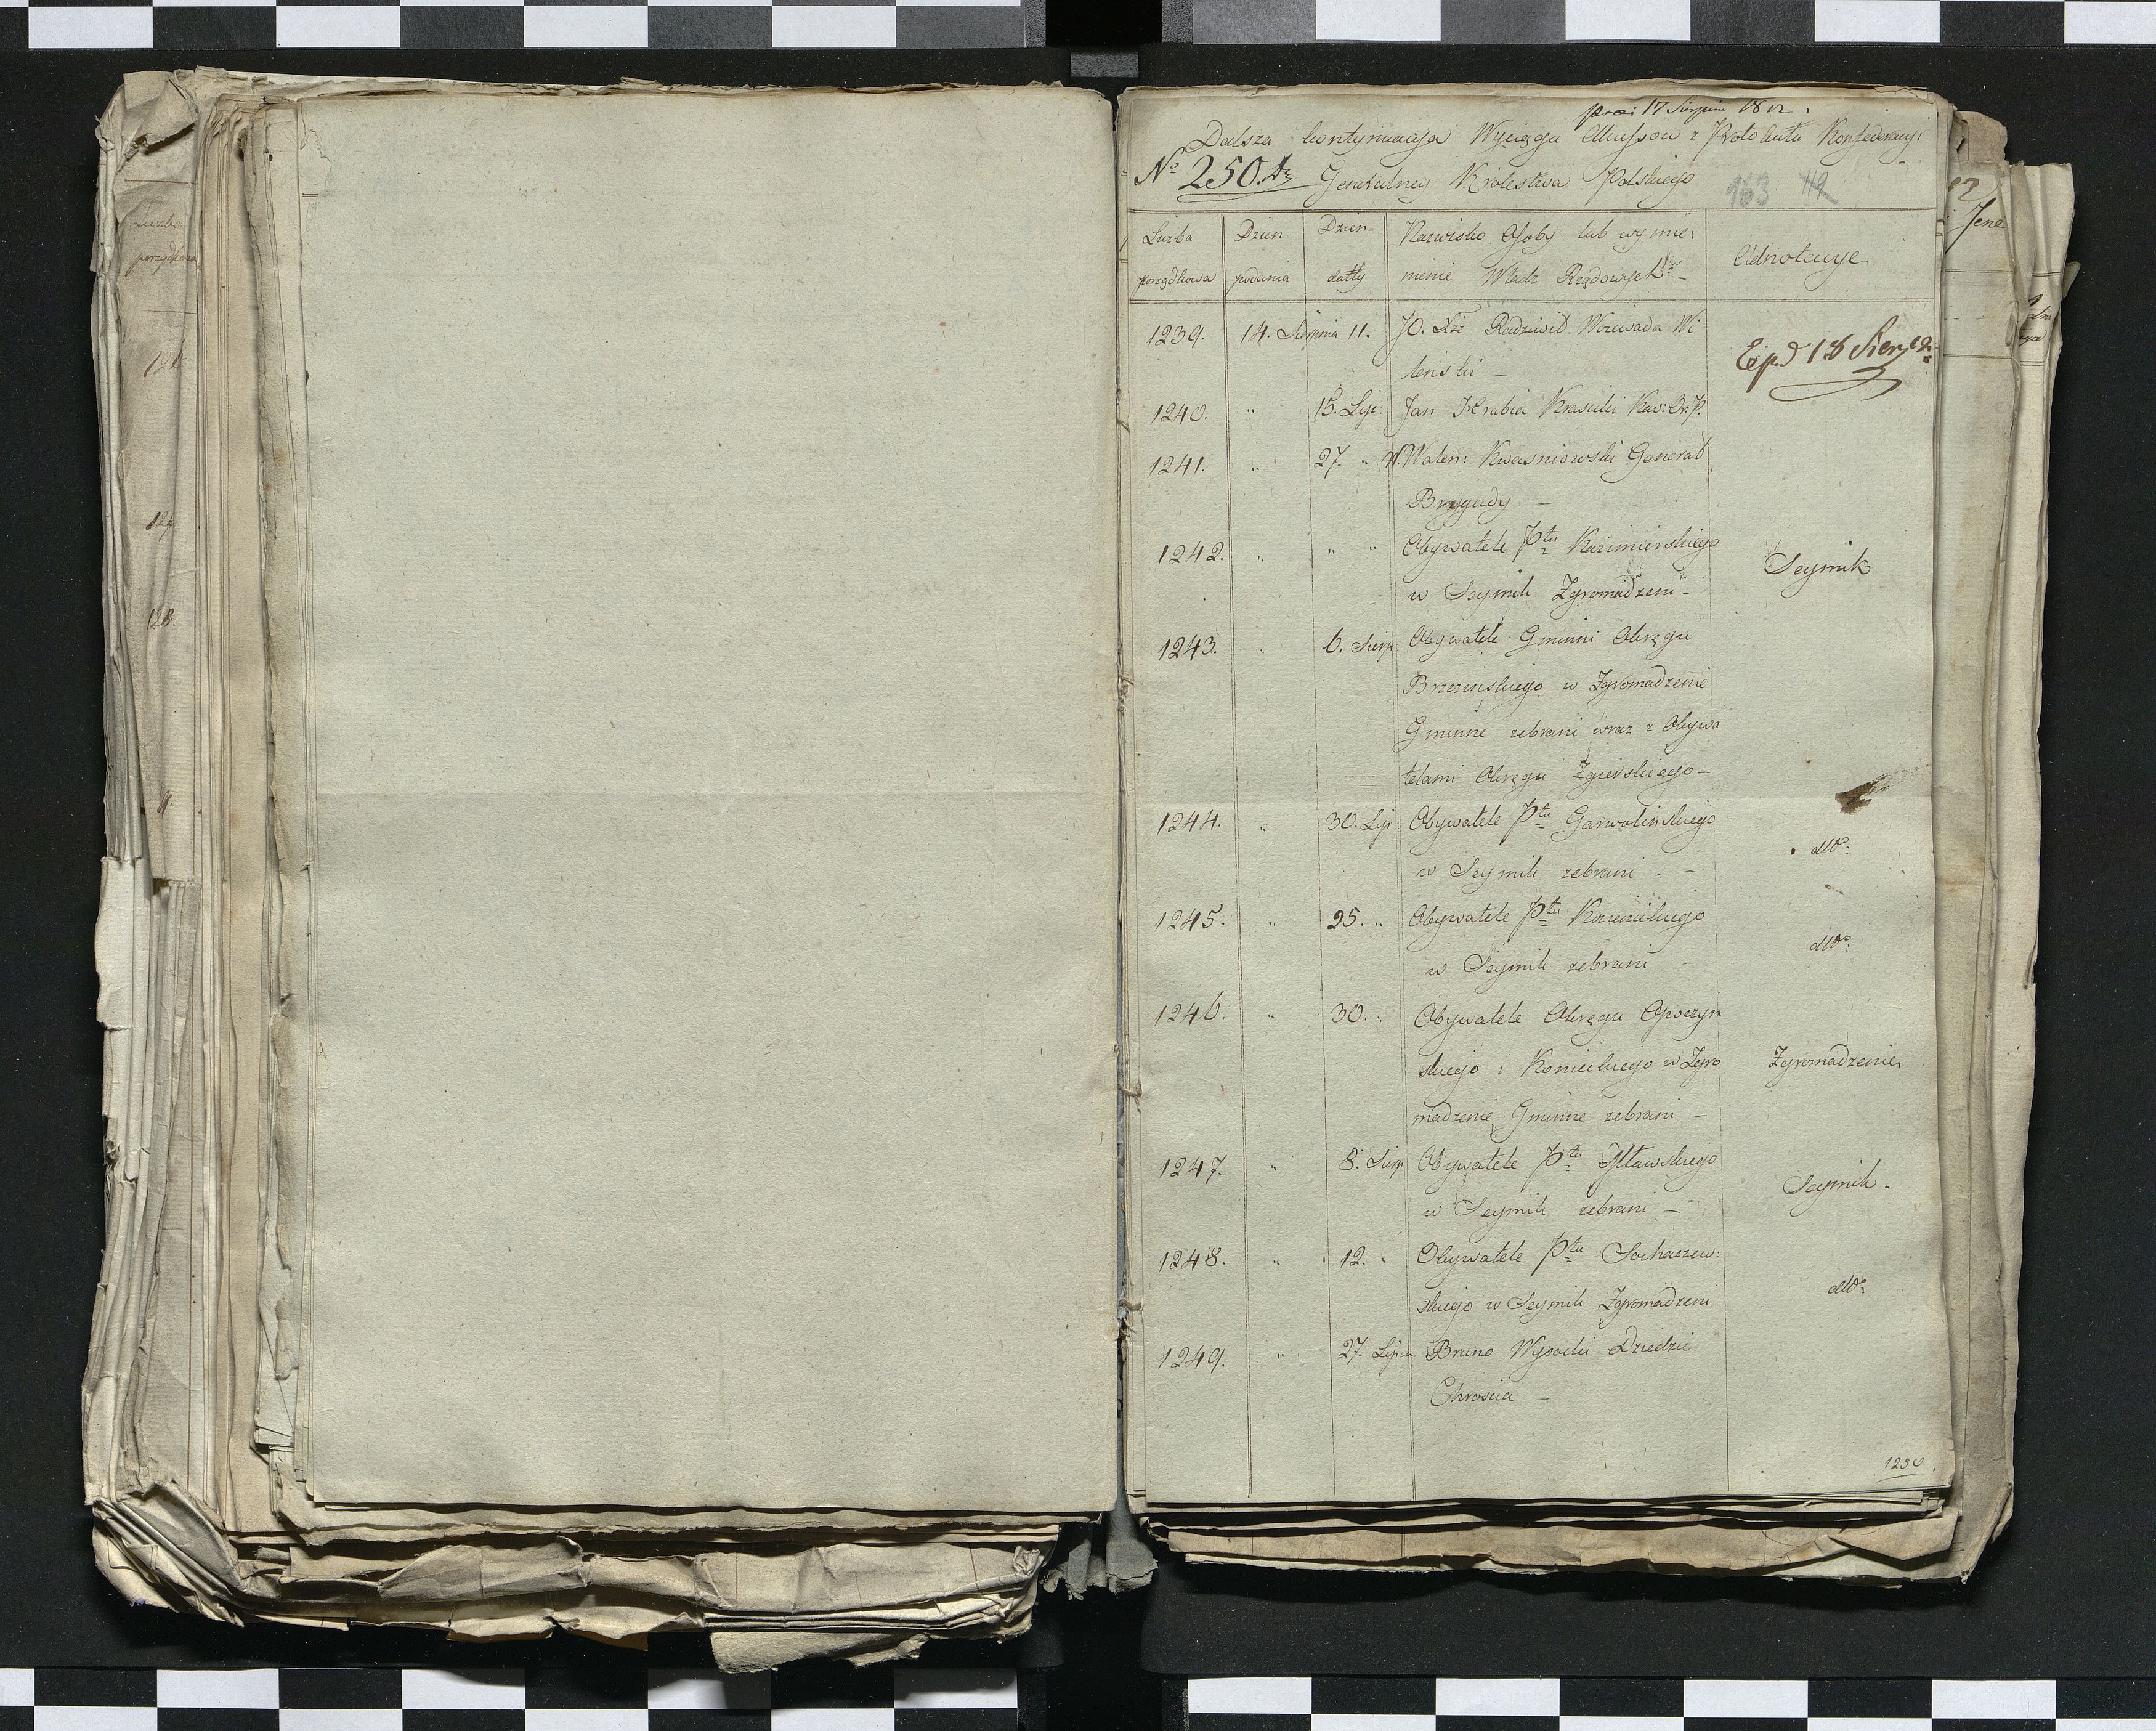 prae: 17 Sierpnia 1812.
Dalsza kontynuacya Wyciągu Akcessow z Protokułu Konfederacyi
No 250. Generalney Krolestwa Polskiego 163 112
Liczba porządkowa
Dzień podania
Dzień datty
Nazwisko Osoby lub wymie:
nienie Władz Rządowych
Adnotacye
1239. 14. Sierpnia 11. JO. Xże Radziwił Woiewoda Wi
leński – Exp 18 Sierp
1240. " 15. Lip: Jan Hrabia Krasicki Kaw: Or: P.
1241. " 27. " W. Walen: Kwasniowski Generał
Brygady –
1242. " " " Obywatele Ptu Kazimierskiego
w Seymik Zgromadzeni – Seymik
1243. " 6. Sierp Obywatele Gminni Okręgu
Brzezinskiego w Zgromadzenie
Gminne zebrani wraz z Obywa
telami Okręgu Zgierskiego –
1244. " 30. Lip: Obywatele Ptu Garwolinskiego
w Seymik zebrani – dtto:
1245. " 25. " Obywatele Ptu Kozienickiego
w Seymik zebrani – dtto:
1246. " 30. " Obywatele Okręgu Opoczyn
skiego i Konieckiego w Zgro Zgromadzenie
madzenie Gminne zebrani –
1247. " 8. Sierp Obywatele Ptu Mławskiego
w Seymik zebrani – Seymik –
1248. " 12. " Obywatele Ptu Sochaczew:
skiego w Seymik Zgromadzeni dtto:
1249. " 27. Lipca Bruno Wysocki Dziedzic
Chroscia –
1250.